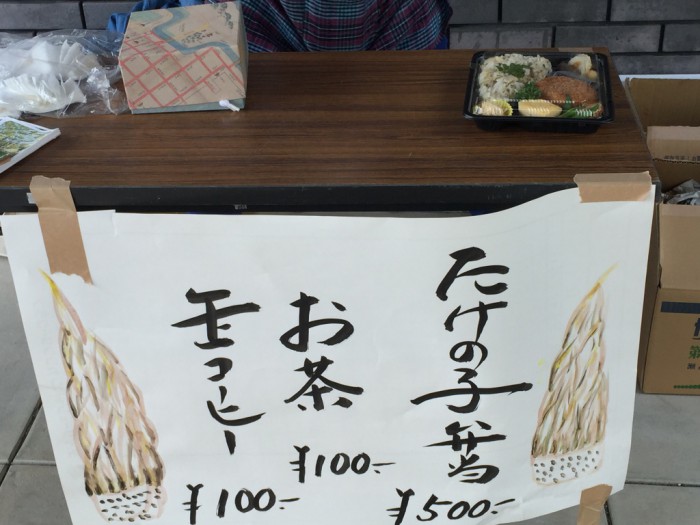 たけの子弁当
¥500.-
お茶
¥100.-
缶コーヒー
¥100.-
第